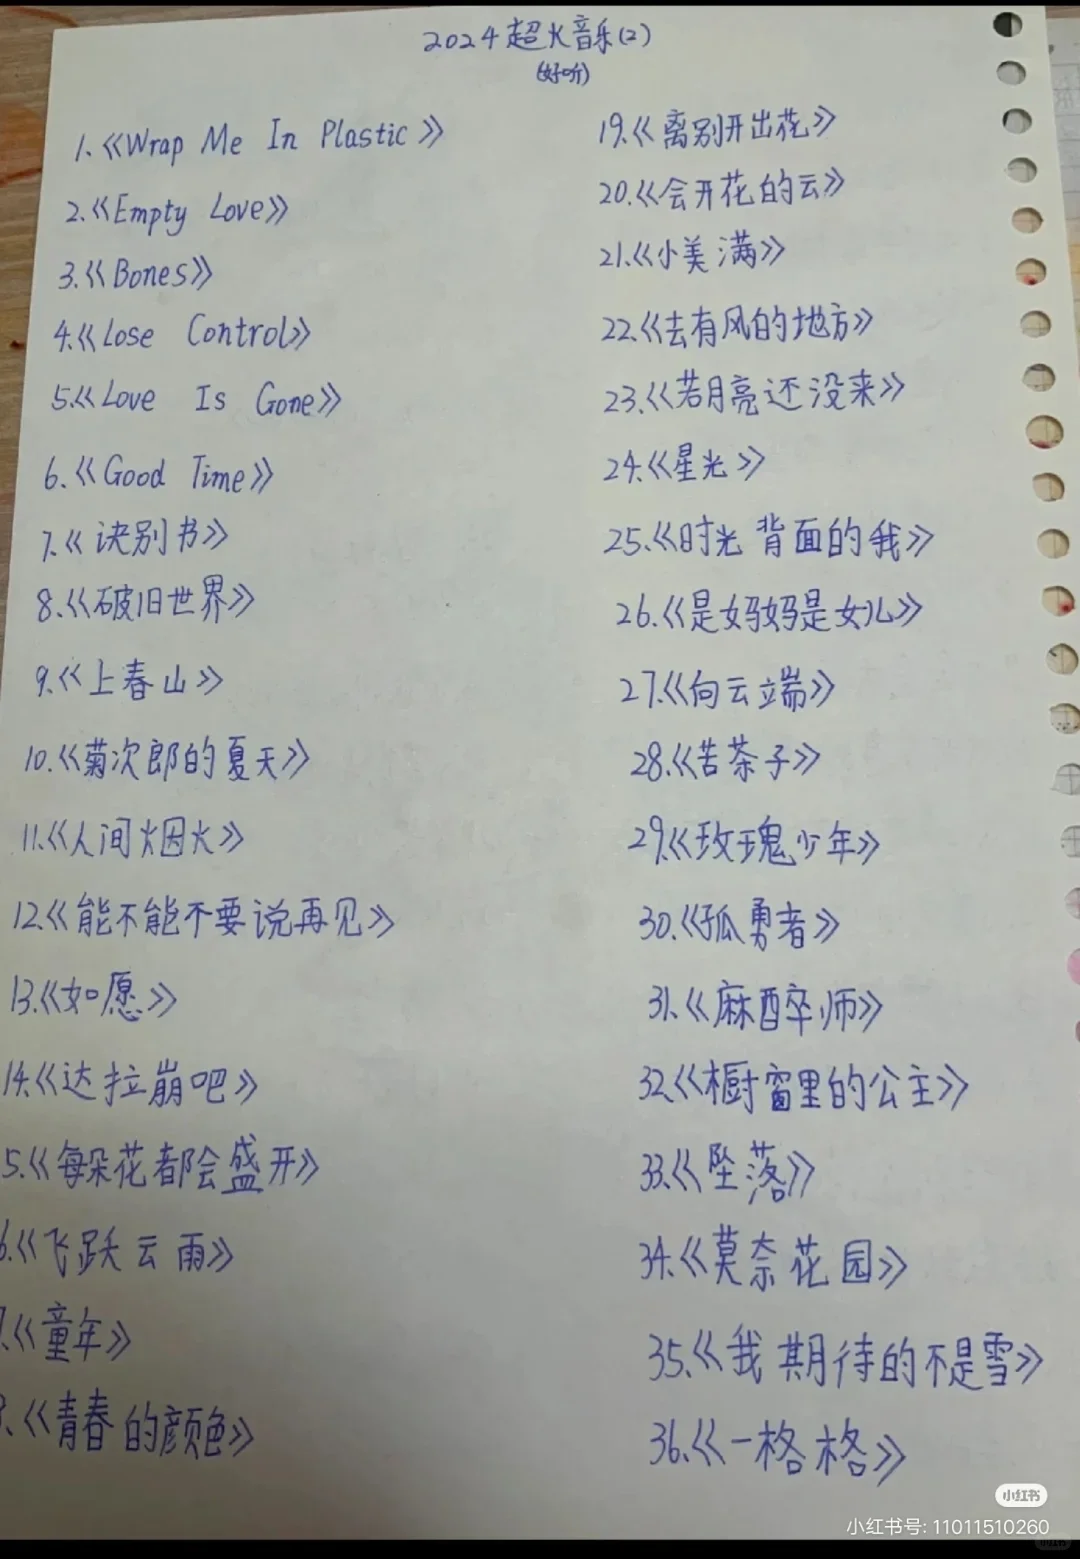 2024超火音乐(2)
(好听)
1.《Wrap Me In Plastic》
2.《Empty Love》
3.《Bones》
4.《Lose Control》
5.《Love Is Gone》
6.《Good Time》
7.《诀别书》
8.《破旧世界》
9.《上春山》
10.《菊次郎的夏天》
11.《人间烟火》
12.《能不能不要说再见》
13.《如愿》
14.《达拉崩吧》
5.《每朵花都会盛开》
6.《飞跃云雨》
《童年》
《青春的颜色》
19.《离别开出花》
20.《会开花的云》
21.《小美满》
22.《去有风的地方》
23.《若月亮还没来》
24.《星光》
25.《时光背面的我》
26.《是妈妈是女儿》
27.《向云端》
28.《苦茶子》
29.《玫瑰少年》
30.《孤勇者》
31.《麻醉师》
32.《橱窗里的公主》
33.《坠落》
34.《莫奈花园》
35.《我期待的不是雪》
36.《一格格》
小红书
小红书号: 11011510260